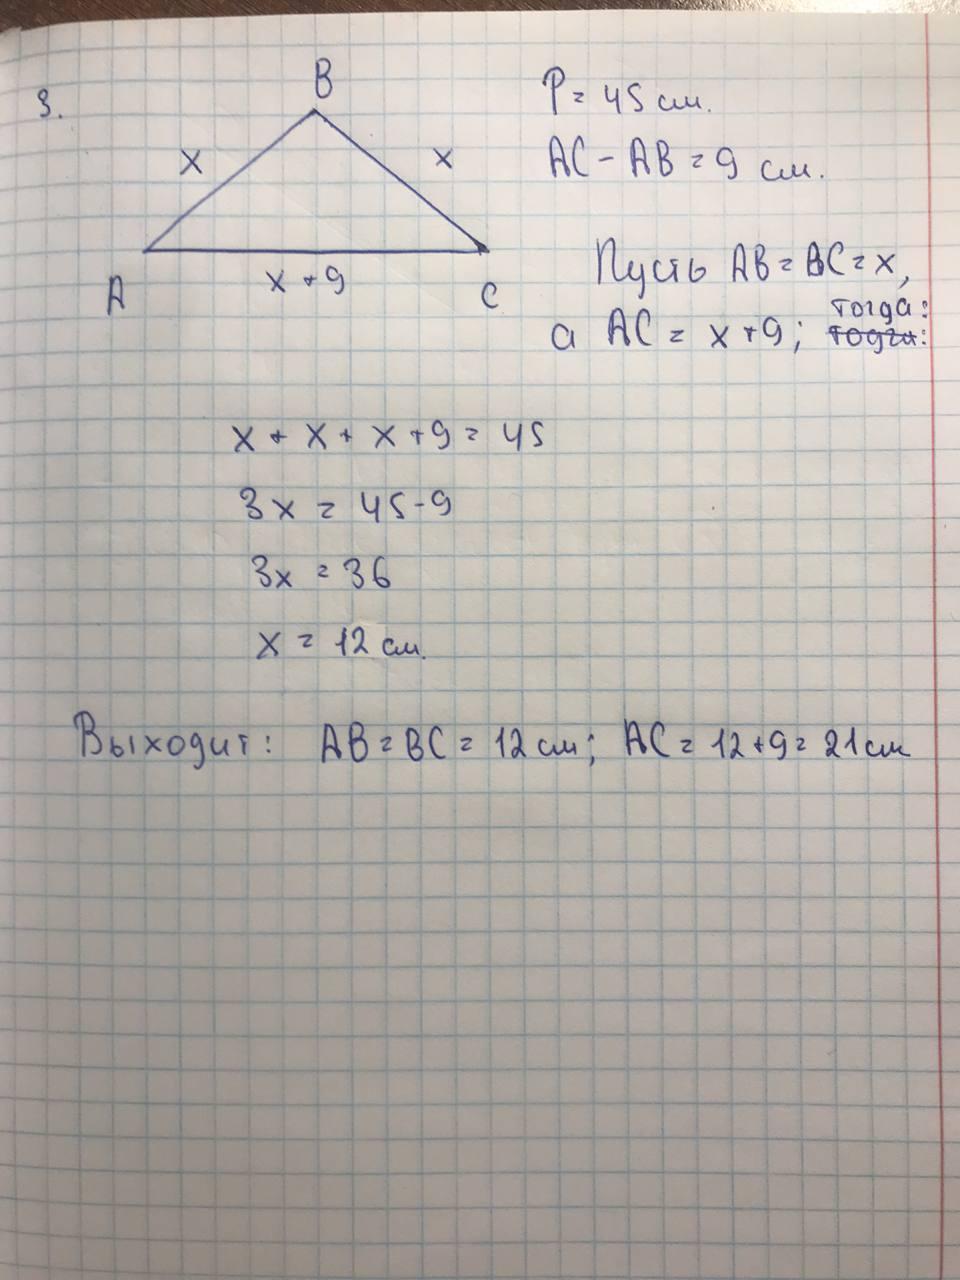 3.
B
P = 45 см.
x
x
AC - AB = 9 см.
A
x + 9
C
Пусть AB = BC = x,
тогда:
а AC = x + 9; тодга:
x + x + x + 9 = 45
3x = 45 - 9
3x = 36
x = 12 см.
Выходит: AB = BC = 12 см; AC = 12 + 9 = 21 см